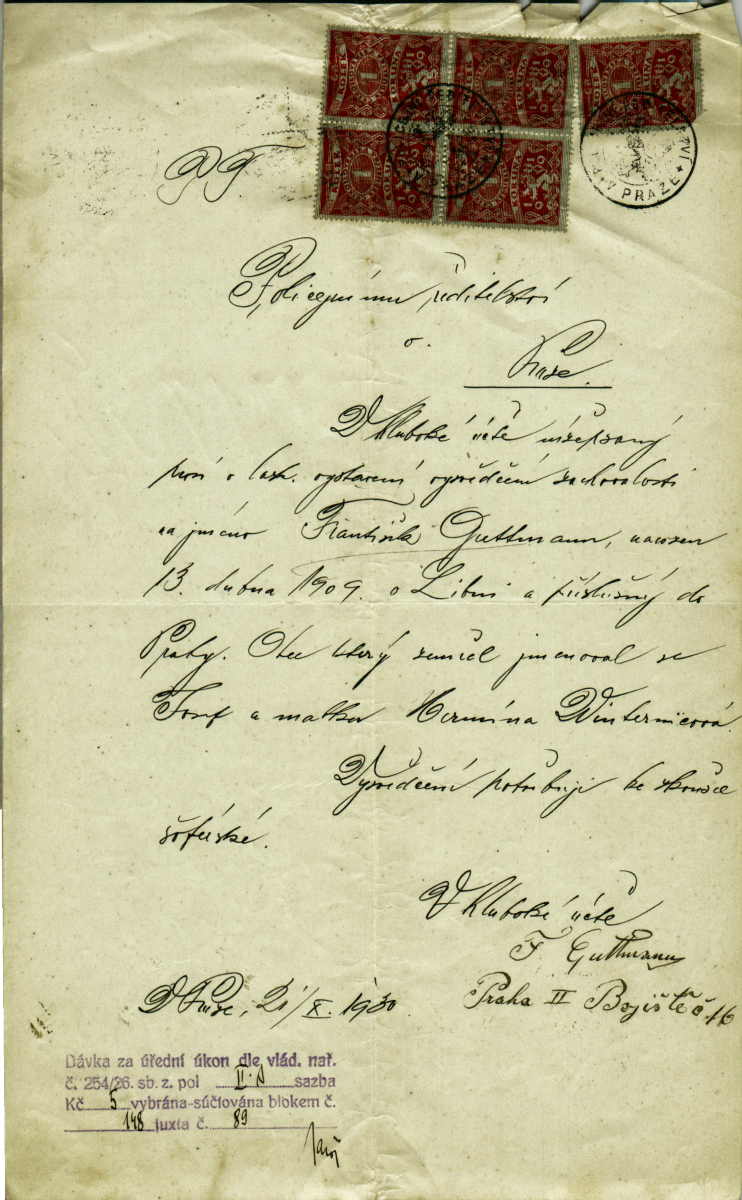 KOLEK 1 KORUNA
KOLEK 1 KORUNA
KOLEK 1 KORUNA
KOLEK 1 KORUNA
KOLEK 1 KORUNA
V PRAZE
P. T.
Policejnímu ředitelství
v
Praze.
V hluboké úctě nížepsaný
prosí o lask. vystavení vysvědčení zachovalosti
na jméno František Guttmann, narozen
13. dubna 1909. v Libni a příslušný do
Prahy. Otec který zemřel jmenoval se
Josef a matka Hermína Winternicová.
Vysvědčení potřebuji ke zkoušce
šoférské.
V hluboké úctě
F Guttmann
Praha II Bojiště č. 16
V Praze, /X. 1930
Dávka za úřední úkon dle vlád. nař.
č. 254/26. sb. z. pol II. A sazba
Kč 5 vybrána-súčtována blokem č.
148 juxta č. 89